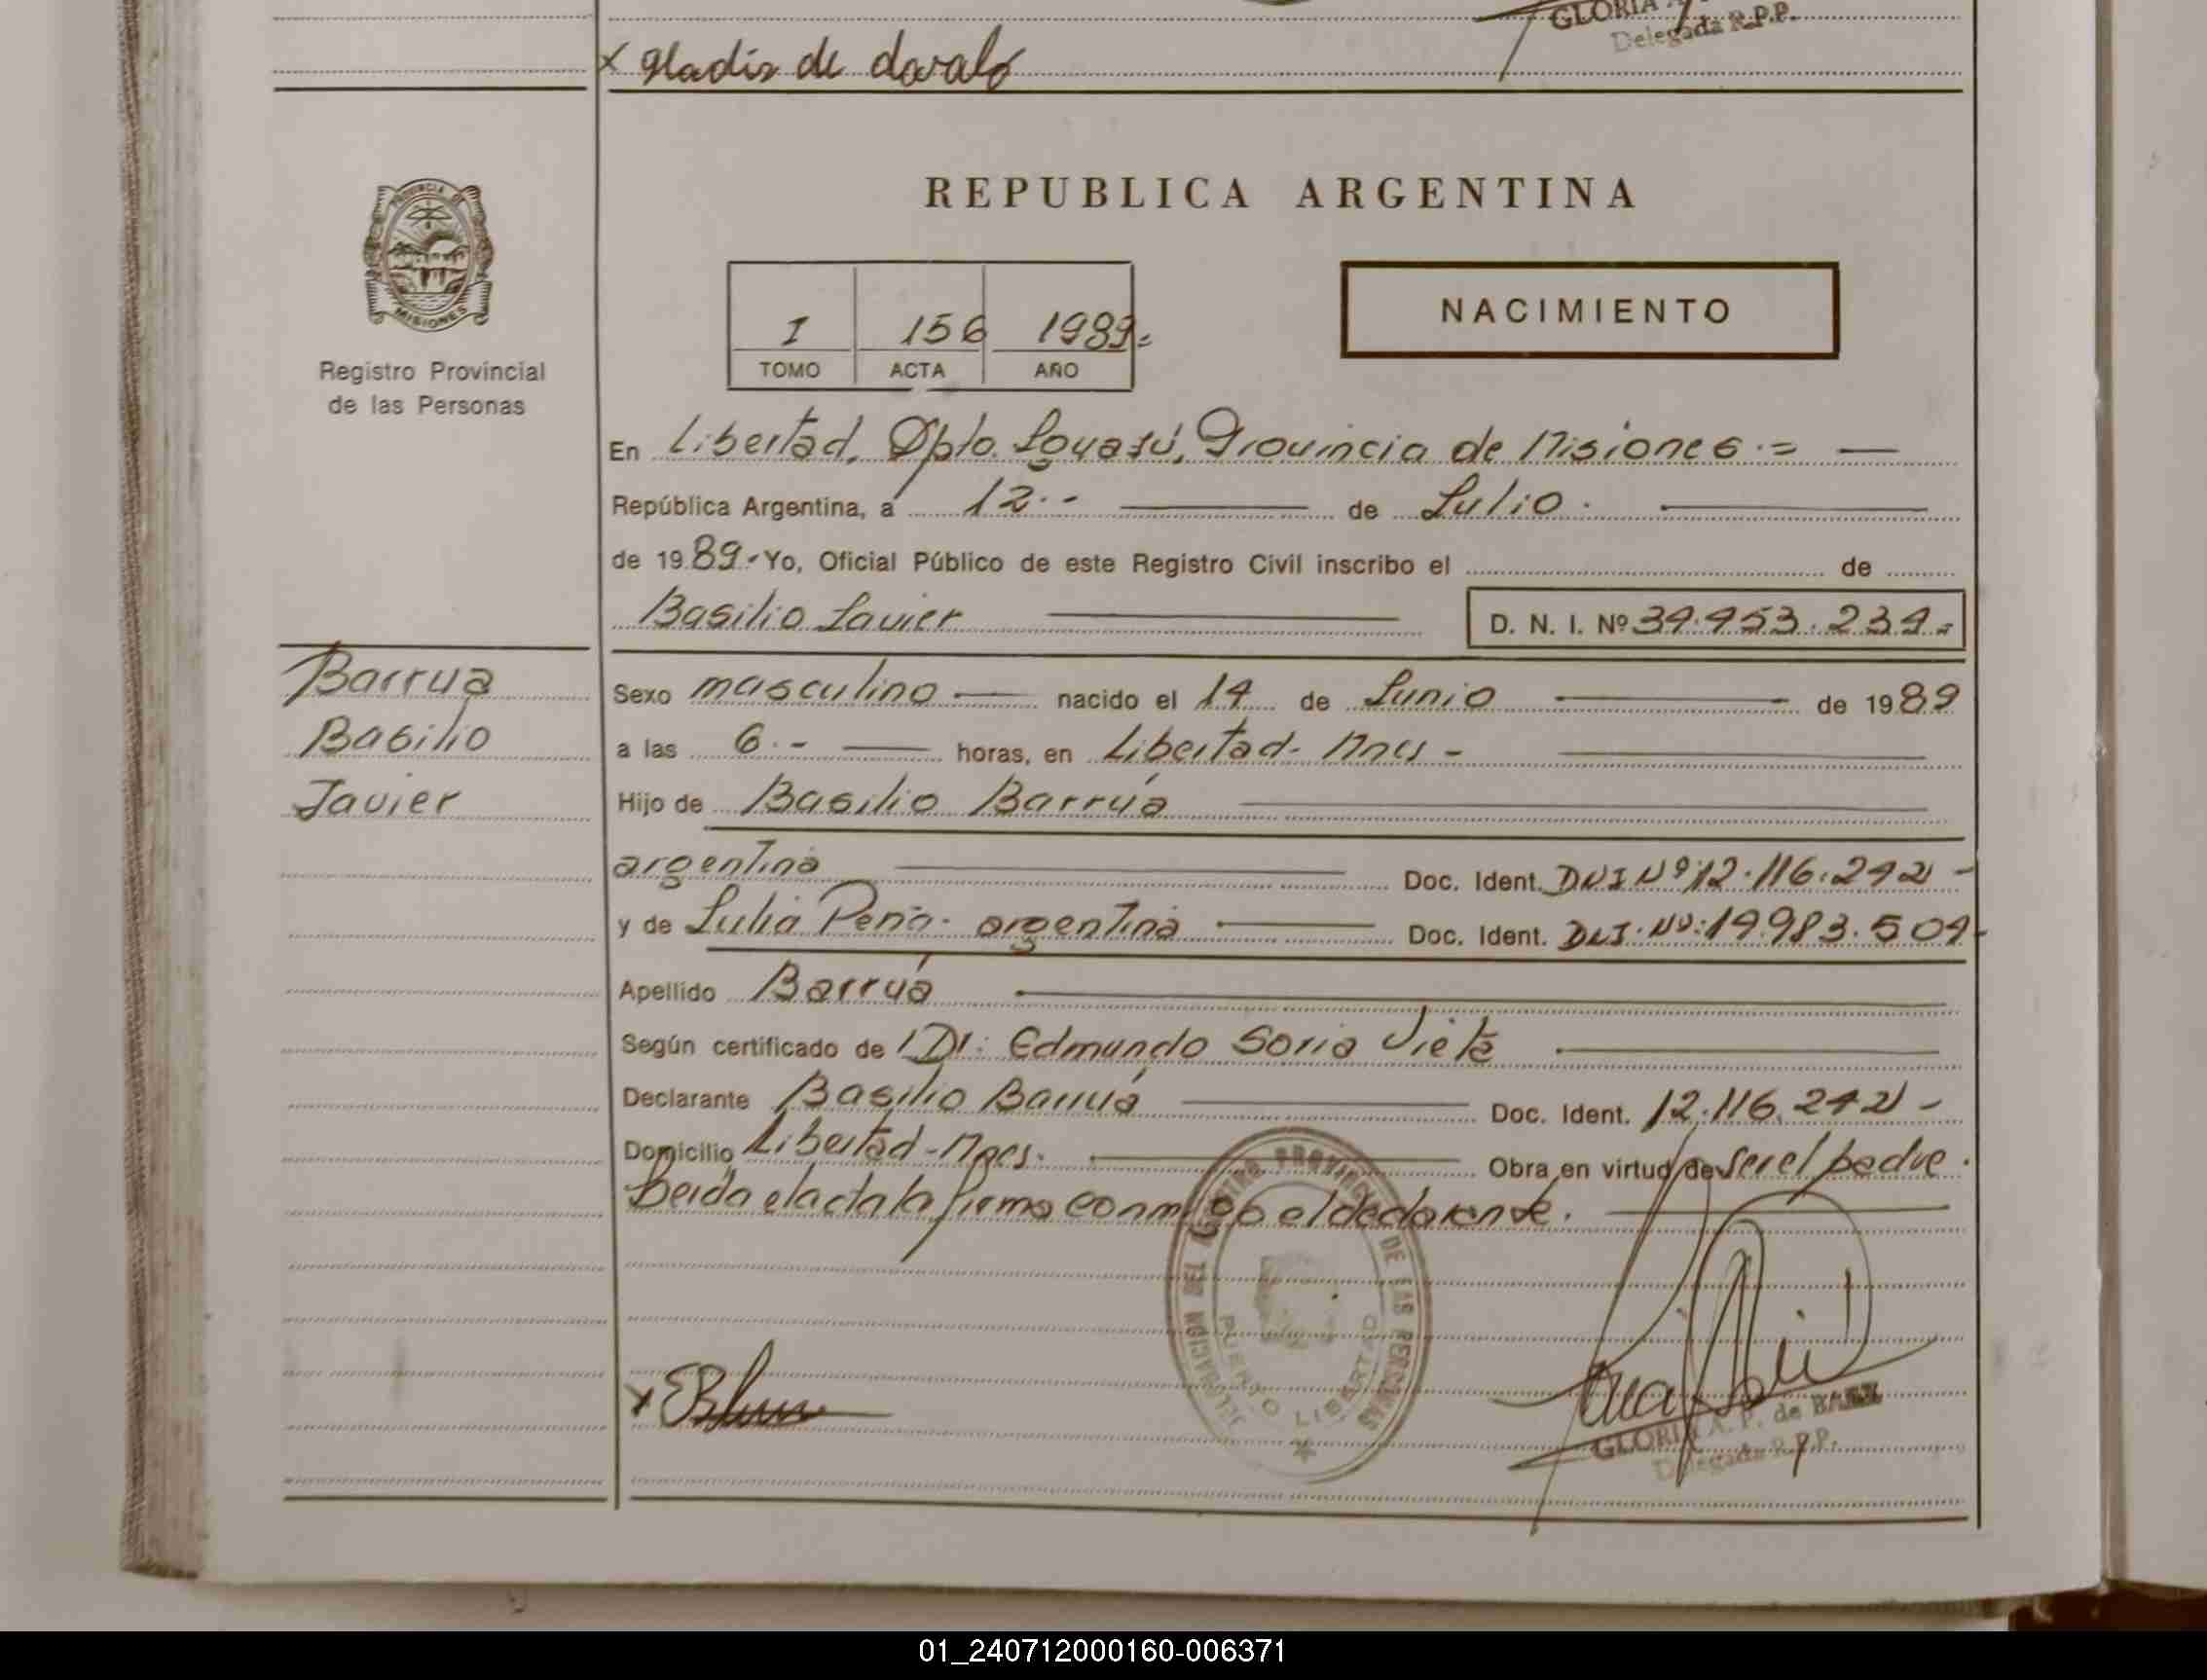 GLORIA A
Delegada R.P.P.
x Gladis de davalo
PROVINCIA DE
MISIONES
Registro Provincial
de las Personas
REPUBLICA ARGENTINA
NACIMIENTO
I 156 1989.=
TOMO ACTA AÑO
En Libertad, Dpto. Iguazú, Provincia de Misiones.=
República Argentina, a 12.- de Julio.
de 1989.- Yo, Oficial Público de este Registro Civil inscribo el de
Basilio Javier D. N. I. Nº 34.453.234.=
Barrua
Basilio
Javier
Sexo masculino nacido el 14 de Junio de 1989
a las 6.- horas, en Libertad- Mnes -
Hijo de Basilio Barrúa
argentina Doc. Ident. DNI Nº 12.116.242 -
y de Julia Peña- argentina Doc. Ident. DNI. Nº: 14.983.504-
Apellido Barrúa
Según certificado de Dr: Edmundo Soria Vieta
Declarante Basilio Barrúa Doc. Ident. 12.116.242 -
Domicilio Libertad-Mnes. Obra en virtud de ser el padre.
Leida el acta la firma conmigo el declarante.
DELEGACION DEL REGISTRO PROVINCIAL DE LAS PERSONAS
PUERTO LIBERTAD
GLORIA A. P. de BAEZ
Delegada R.P.P.
01_240712000160-006371